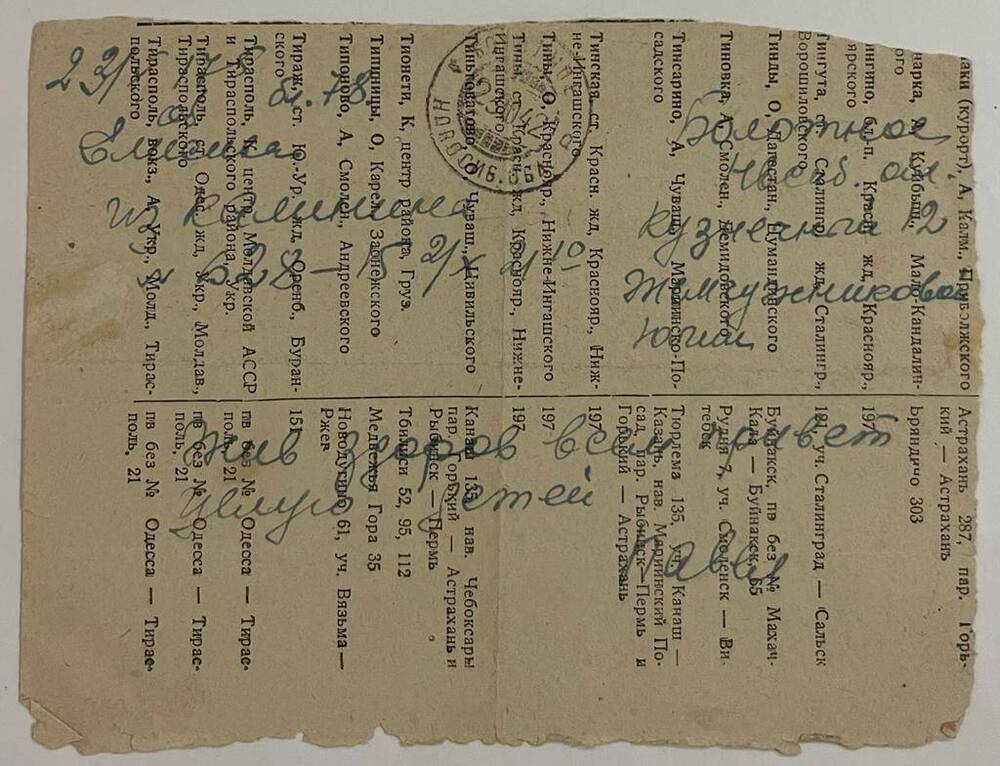 Болотное
Новосиб. об.
кузнечная 12
Жемчужниковой
Юлии
из Калинина
Жив здоров всем привет
целую детей
Павел
аки (курорт), А, Калм., Приволжского
Астрахань 287, пар. Горь-
кий — Астрахань
нарка, А, Куйбыш., Мало-Кандалин-
ого
Бряндино 303
ингино, бл.-п. Красн. жд, Краснояр.,
ярского
197
Тингута, ст. Сталингр. жд, Сталингр.,
Ворошиловского
121, уч. Сталинград — Сальск
Тинды, О, Дагестан., Цумадинского
Буйнакск, пв без № Махач-
Кала — Буйнакск, 65
Тиновка, А, Смолен., Демидовского
Рудня 7, уч. Смоленск — Ви-
тебск
Тинсарино, А, Чуваш., Мариинско-По-
садского
Тюрлема 135, уч. Канаш —
Казань, нав. Мариинский По-
сад, пар. Рыбинск — Пермь и
Горький — Астрахань
Тинская, ст. Красн. жд, Краснояр., Ниж-
не-Ингашского
197
Тины, О, Краснояр., Нижне-Ингашского
197
Тины, ст. Красн. жд, Краснояр., Нижне-
Ингашского
197
Тиньговатово, О, Чуваш., Цивильского
Канаш 135, нав. Чебоксары
пар. Горький — Астрахань и
Рыбинск — Пермь
Тионети, К, центр района, Груз.
Тбилиси 52, 95, 112
Типиницы, О, Карел., Заонежского
Медвежья Гора 35
Типоново, А, Смолен., Андреевского
Новодугино 61, уч. Вязьма —
Ржев
Тираж, ст. Ю.-Ур. жд, Оренб., Буран-
ского
151
Тирасполь, К, центр Молдавской АССР
и Тираспольского района, Укр.
пв без № Одесса — Тирас-
поль, 21
Тирасполь, ст. Одес. жд, Укр., Молдав.,
Тираспольского
пв без № Одесса — Тирас-
поль, 21
Тирасполь, вокз., А, Укр., Молд., Тирас-
польского
пв без № Одесса — Тирас-
поль, 21